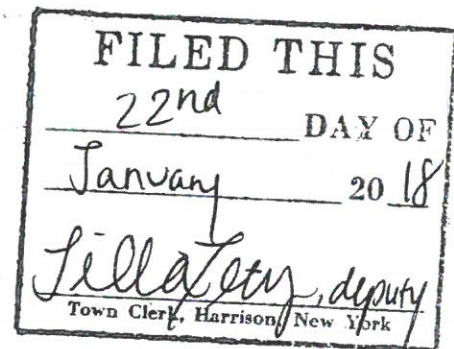 FILED THIS
22nd DAY OF
January 20 18
, deputy
Town Clerk, Harrison, New York